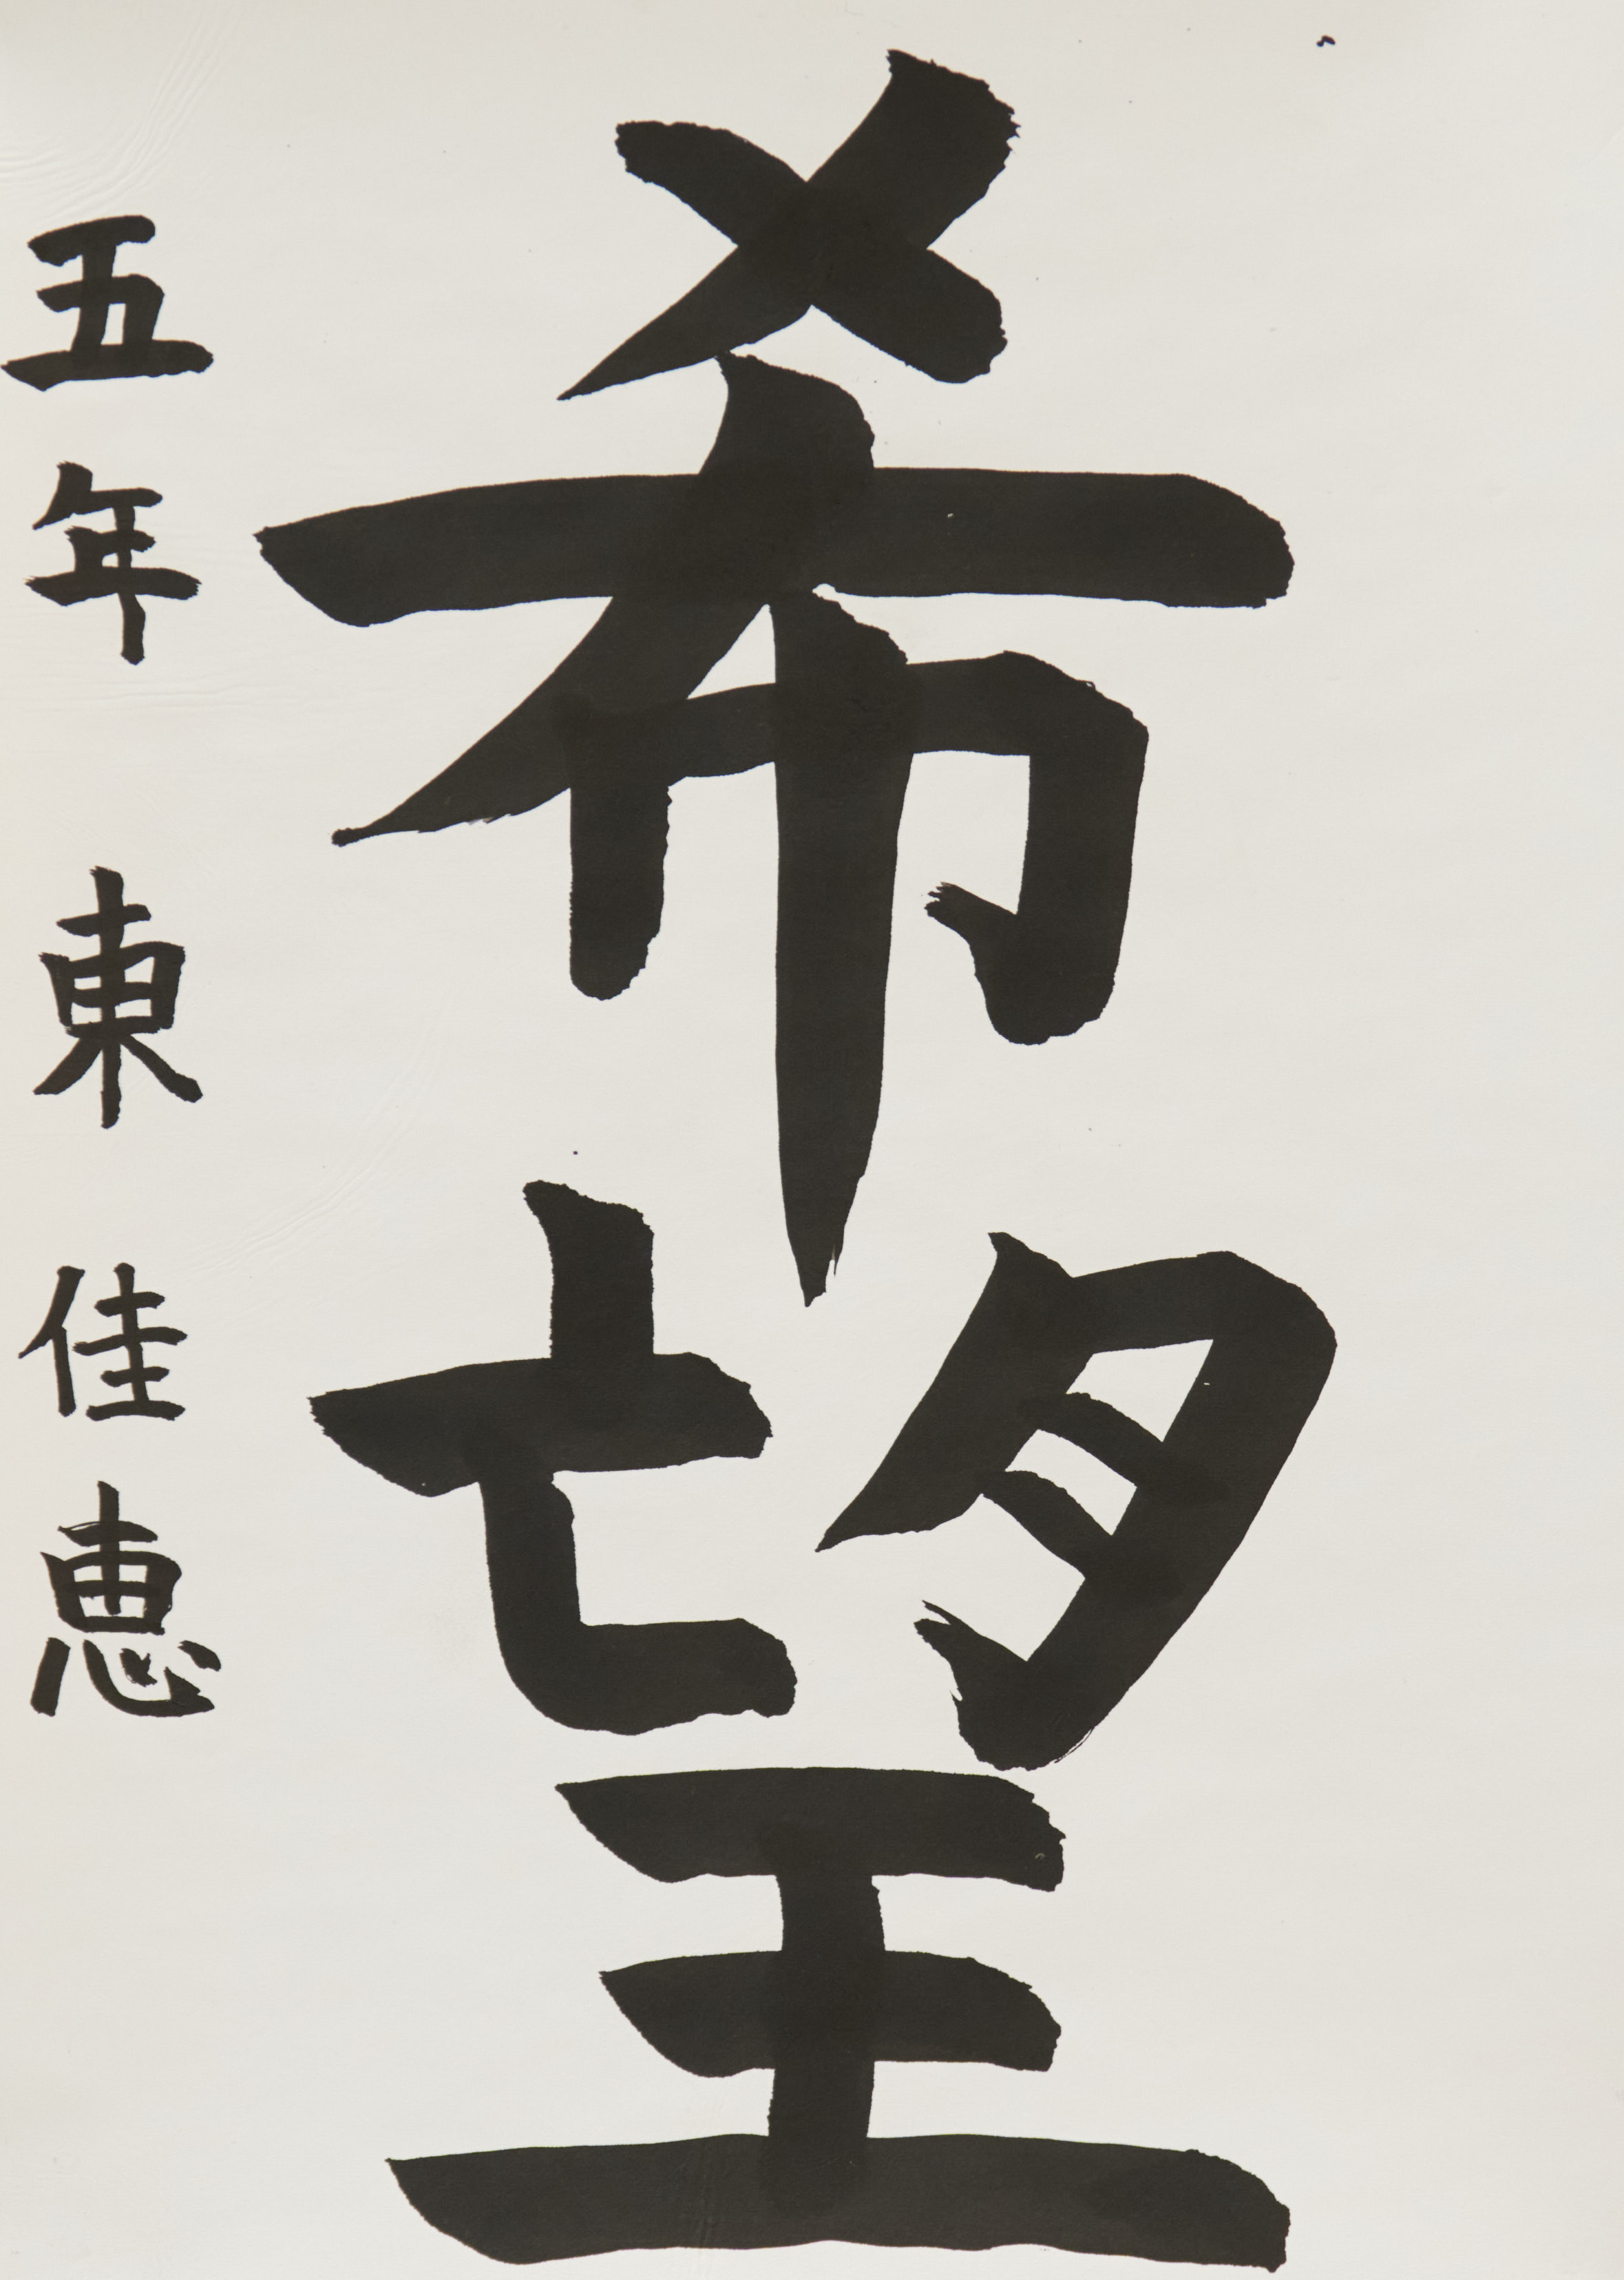 希望
五年 東 佳恵